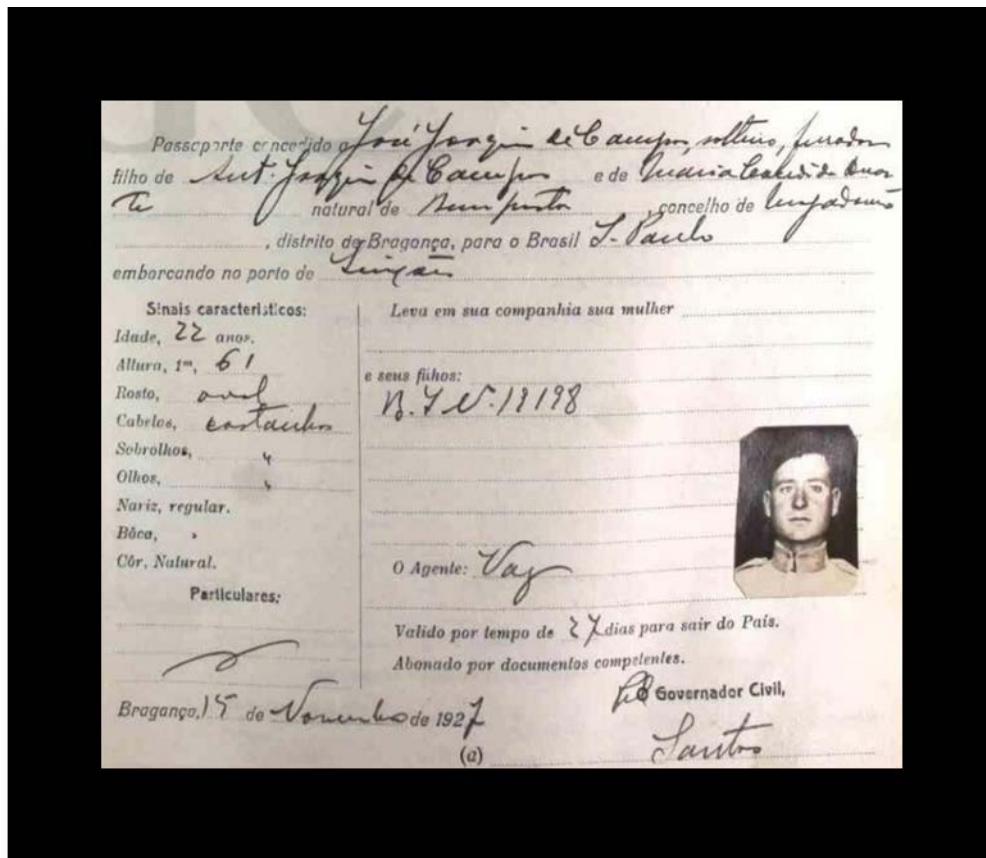 Passaporte concedido a José Joaquim de Campos, solteiro, ferrador
filho de Ant. Joaquim de Campos e de Maria Candida Duar
te natural de Bemposta, concelho de Mogadouro
, distrito de Bragança, para o Brasil S. Paulo
embarcando no porto de Leixões
Sinais caracteristicos:
Idade, 22 anos.
Altura, 1ᵐ, 61
Rosto, oval
Cabelos, castanhos
Sobrolhos, "
Olhos, "
Nariz, regular.
Bôca, »
Côr, Natural.
Particulares:
Leva em sua companhia sua mulher
e seus filhos:
B. I. N. 19198
O Agente: Vaz
Valido por tempo de 27 dias para sair do País.
Abonado por documentos competentes.
Bragança, 15 de Novembro de 1927
O Governador Civil,
(a) Santos